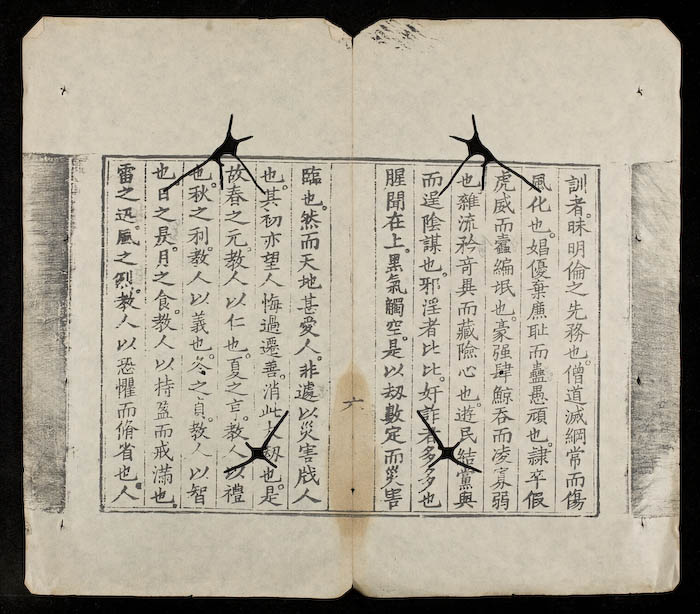 訓者。昧明倫之先務也。僧道滅綱常而傷
風化也。娼優棄廉恥而蠱愚頑也。隷卒假
虎威而蠹編氓也。豪强肆鯨吞而凌寡弱
也。雜流衿奇異而藏險心也。遊民結黨與
而逞陰謀也。邪淫者比比。奸詐者多多也
腥聞在上。黑氣觸空。是以刼數定而災害
六
臨也。然而天地甚愛人。非遽以災害戕人
也。其初亦望人悔過遷善。消此大刼也。是
故春之元。教人以仁也。夏之亨。教人以禮
也。秋之利。教人以義也。冬之貞。教人以智
也。日之昃。月之食。教人以持盈而戒滿也。
雷之迅。風之烈。教人以恐懼而脩省也。人